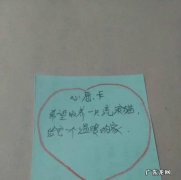 心愿卡
希望收养一只流浪猫,
给它一个温暖的家.
广东龙网